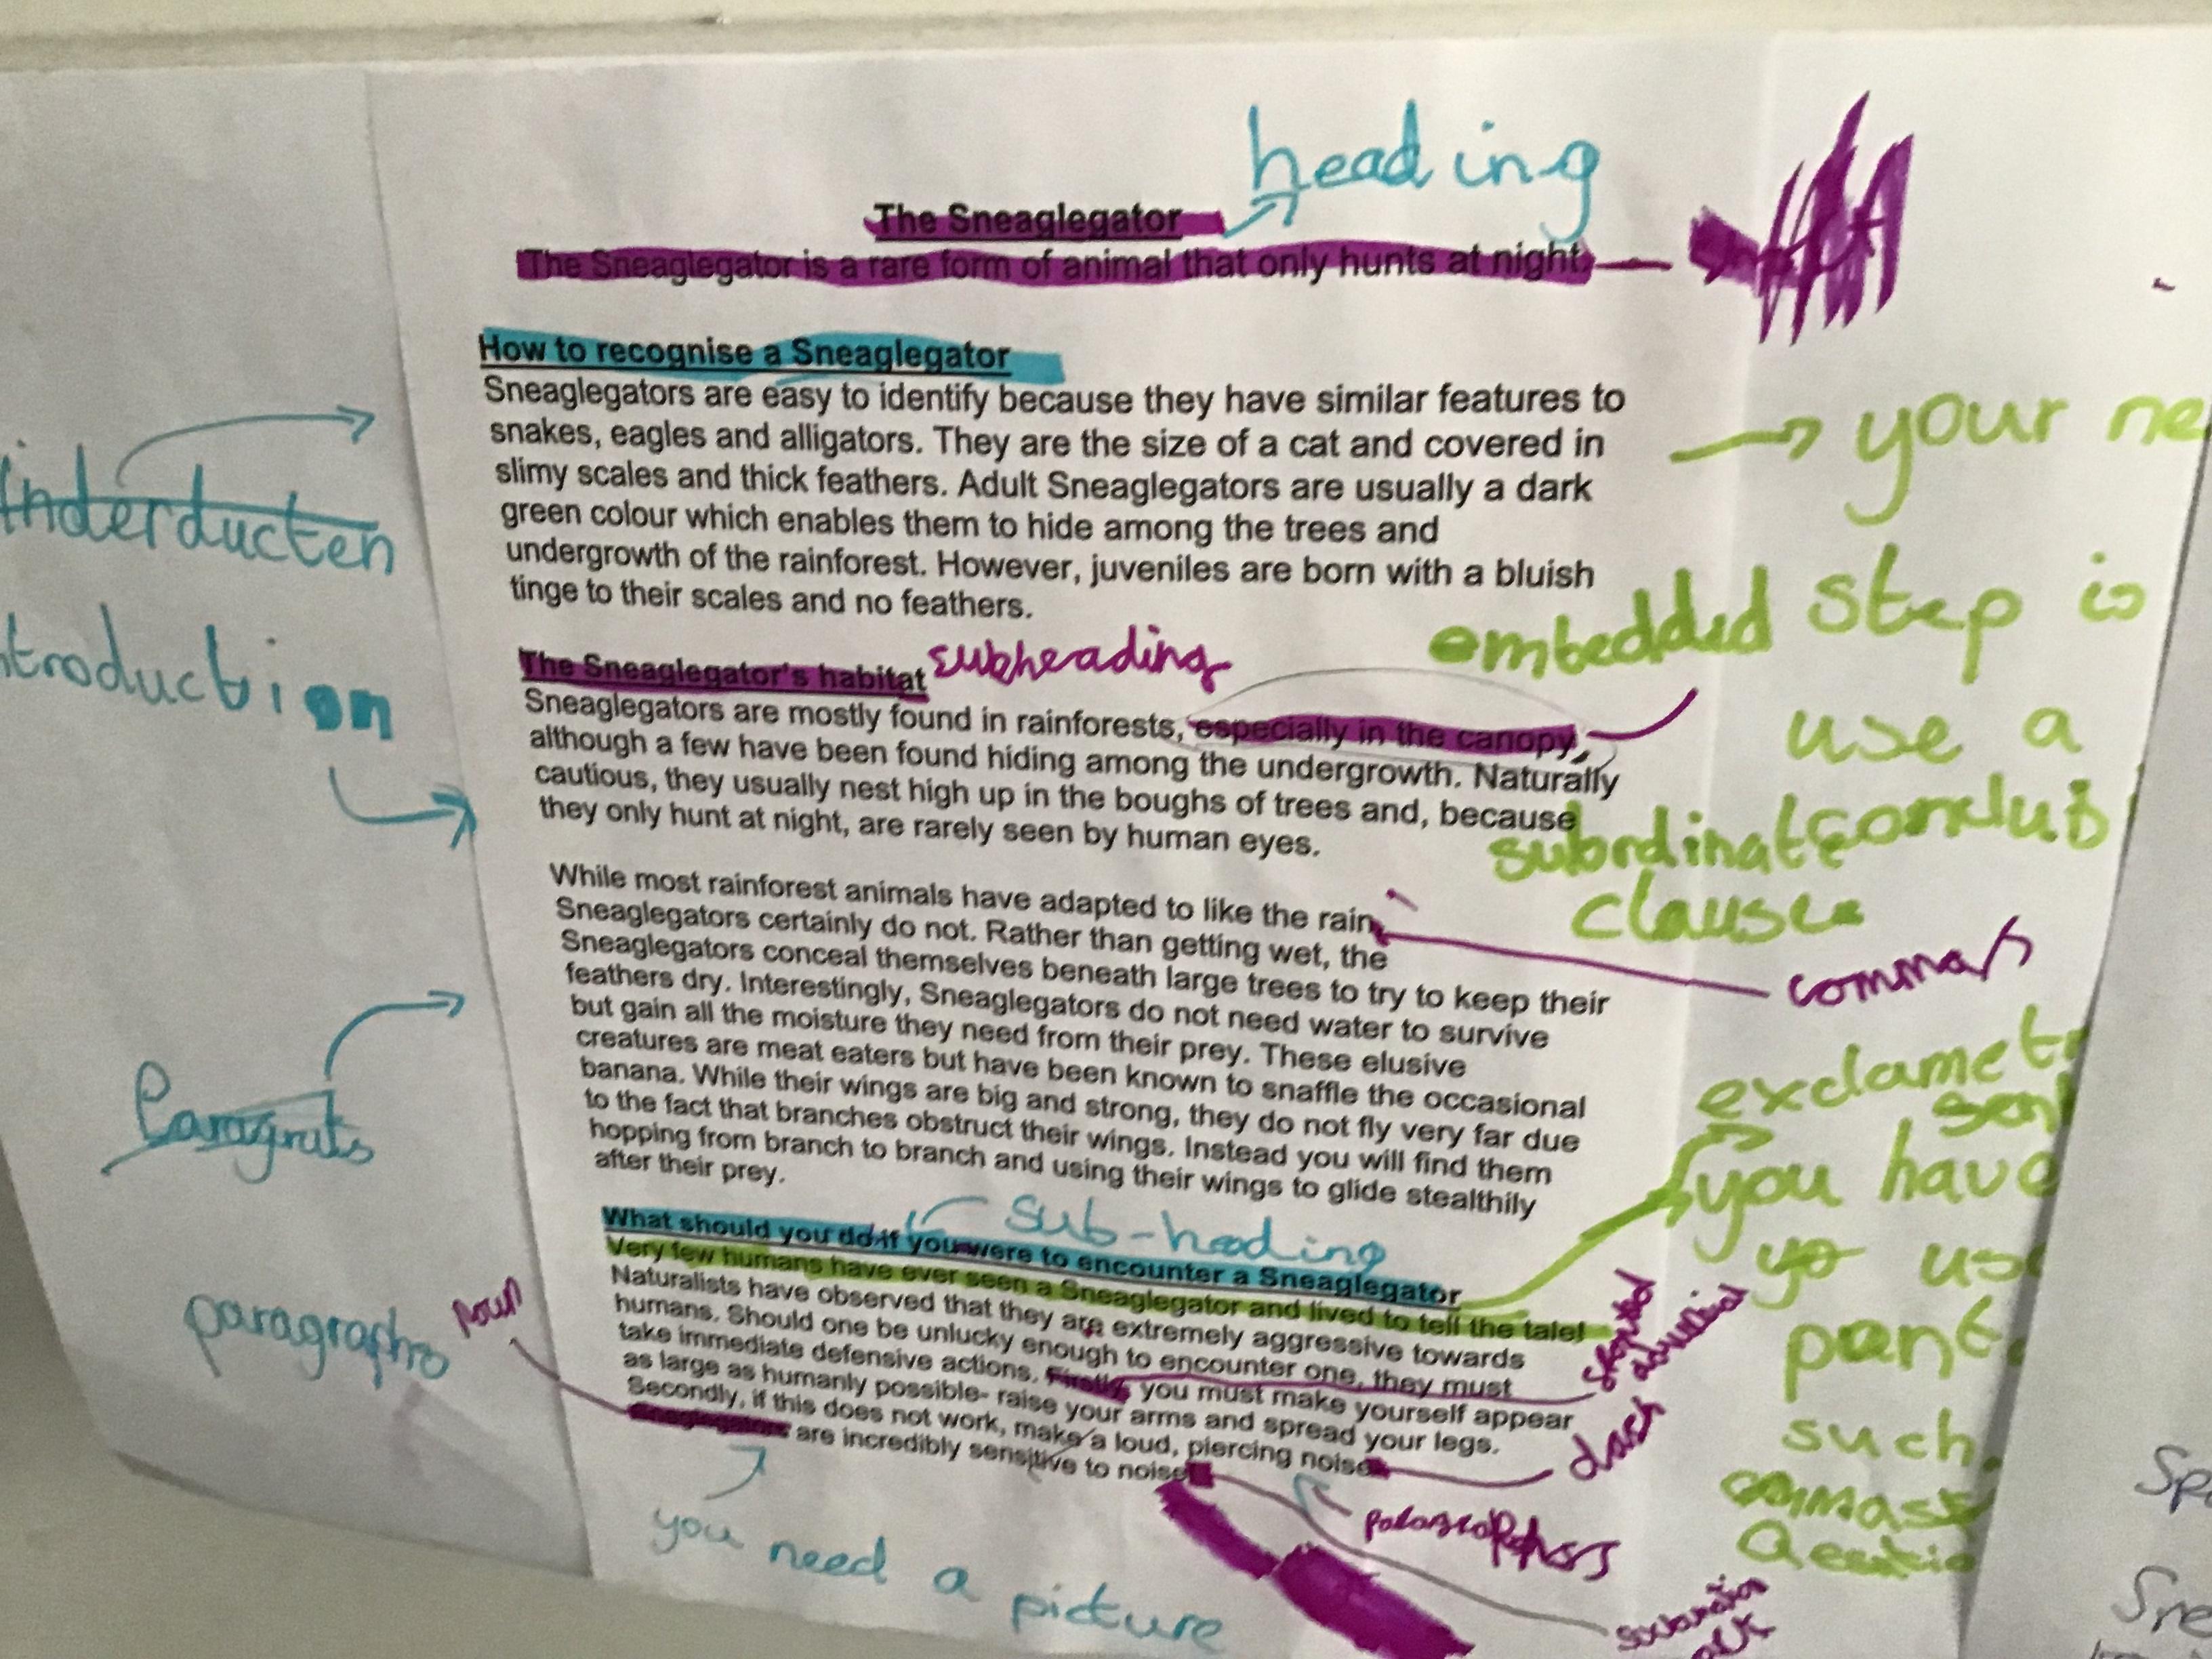 heading
The Sneaglegator
The Sneaglegator is a rare form of animal that only hunts at night.
How to recognise a Sneaglegator
Sneaglegators are easy to identify because they have similar features to
snakes, eagles and alligators. They are the size of a cat and covered in
slimy scales and thick feathers. Adult Sneaglegators are usually a dark
green colour which enables them to hide among the trees and
undergrowth of the rainforest. However, juveniles are born with a bluish
tinge to their scales and no feathers.
The Sneaglegator's habitat
subheading
Sneaglegators are mostly found in rainforests, especially in the canopy,
although a few have been found hiding among the undergrowth. Naturally
cautious, they usually nest high up in the boughs of trees and, because
they only hunt at night, are rarely seen by human eyes.
While most rainforest animals have adapted to like the rain,
Sneaglegators certainly do not. Rather than getting wet, the
Sneaglegators conceal themselves beneath large trees to try to keep their
feathers dry. Interestingly, Sneaglegators do not need water to survive
but gain all the moisture they need from their prey. These elusive
creatures are meat eaters but have been known to snaffle the occasional
banana. While their wings are big and strong, they do not fly very far due
to the fact that branches obstruct their wings. Instead you will find them
hopping from branch to branch and using their wings to glide stealthily
after their prey.
sub-heading
What should you do if you were to encounter a Sneaglegator
Very few humans have ever seen a Sneaglegator and lived to tell the tale!
Naturalists have observed that they are extremely aggressive towards
humans. Should one be unlucky enough to encounter one, they must
take immediate defensive actions. Firstly, you must make yourself appear
as large as humanly possible- raise your arms and spread your legs.
Secondly, if this does not work, make a loud, piercing noise
Sneaglegators are incredibly sensitive to noise
you need a picture
inderducten
ntroduction
Paragrats
paragraphs
noun
your ne
step is
use a
conclus
embedded
subordinate
clause
commas
exclamet
sent
you have
yo us
such
dash